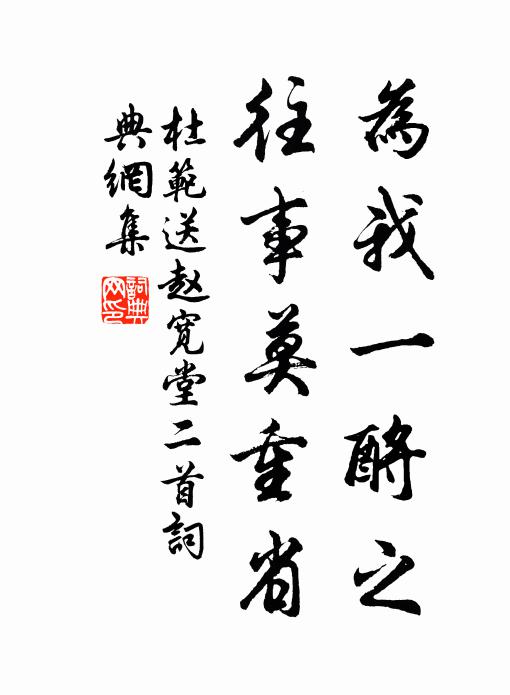 為我一酹之
往事莫重省
杜範送赵寬堂二首詞
典網集
詞典
网印